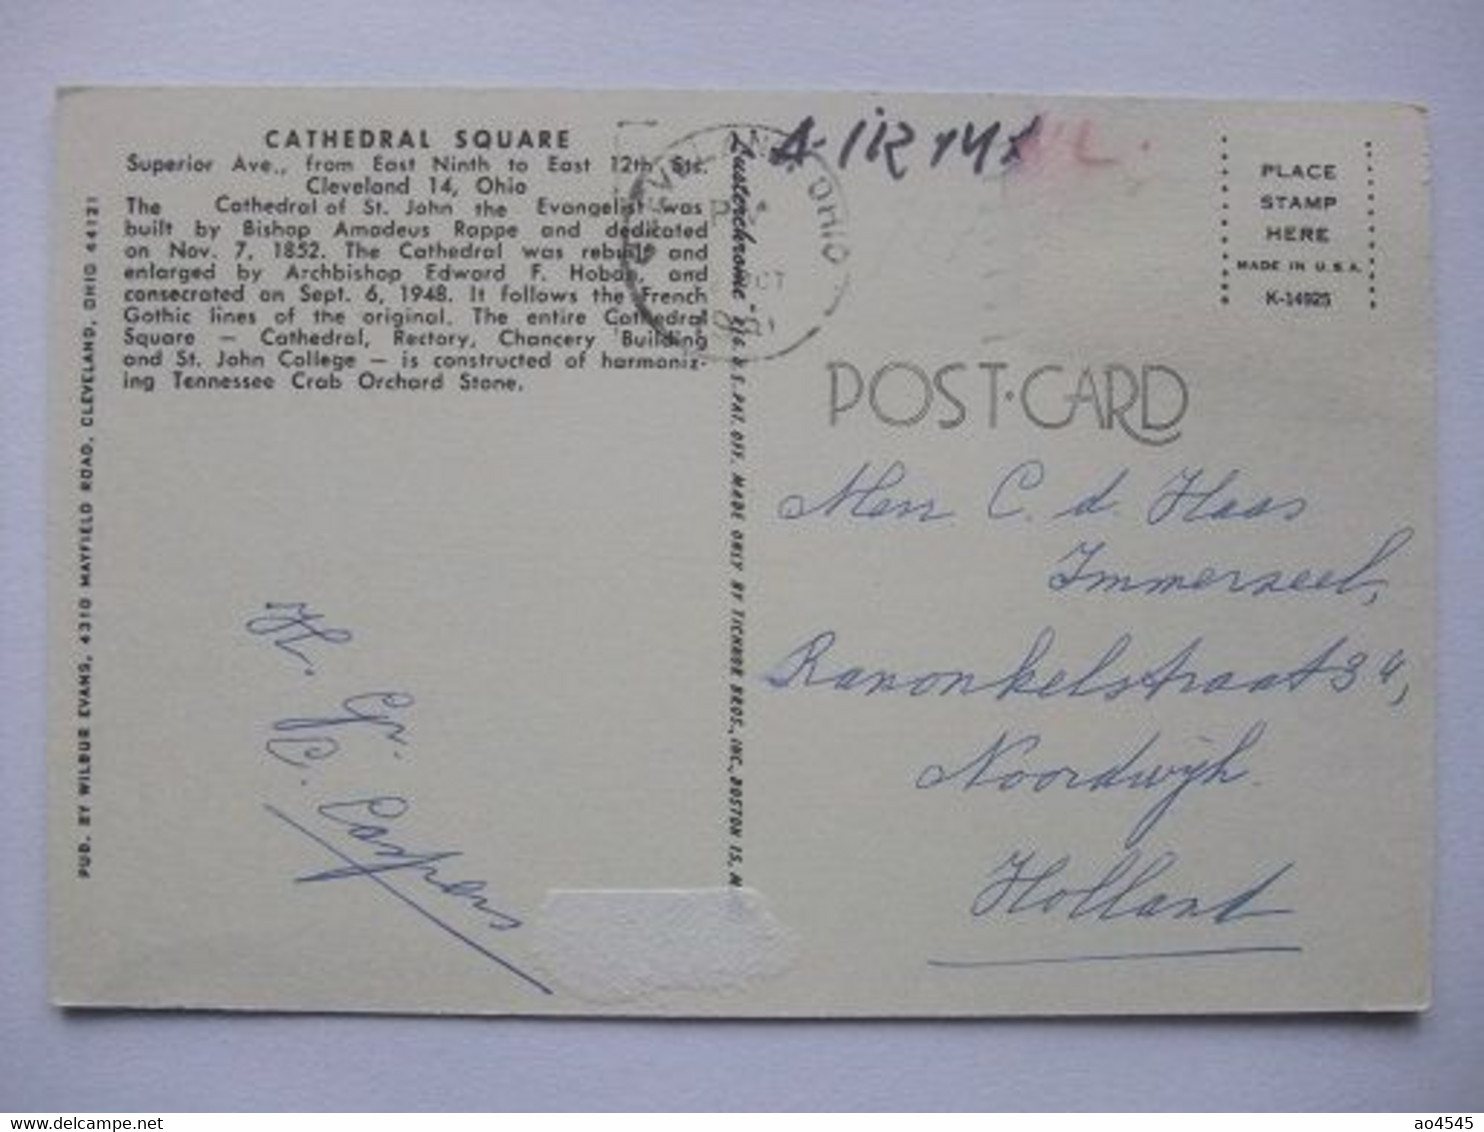 CATHEDRAL SQUARE
Superior Ave., from East Ninth to East 12th Sts.
Cleveland 14, Ohio
The Cathedral of St. John the Evangelist was
built by Bishop Amadeus Rappe and dedicated
on Nov. 7, 1852. The Cathedral was rebuilt and
enlarged by Archbishop Edward F. Hoban, and
consecrated on Sept. 6, 1948. It follows the French
Gothic lines of the original. The entire Cathedral
Square — Cathedral, Rectory, Chancery Building
and St. John College — is constructed of harmoniz-
ing Tennessee Crab Orchard Stone.
PUB. BY WILBUR EVANS, 4310 MAYFIELD ROAD, CLEVELAND, OHIO 44121
H. Gr.
C. Caspers
"Lusterchrome" REG. U.S. PAT. OFF. MADE ONLY BY TICHNOR BROS., INC., BOSTON 15, M
OHIO
OCT
A-IR
PLACE
STAMP
HERE
MADE IN U.S.A.
K-14925
POST·CARD
Menr C. d. Haas
Immerzeel,
Ranonkelstraat 34,
Noordwijk.
Holland
ao4545